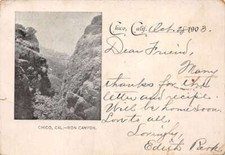 Chico, Cal. Oct 28 1903.
Dear Friend,
Many
thanks for
letter and recipe.
Will be home soon
Love to all.
Lovingly,
Edith Park
CHICO, CAL.—IRON CANYON.